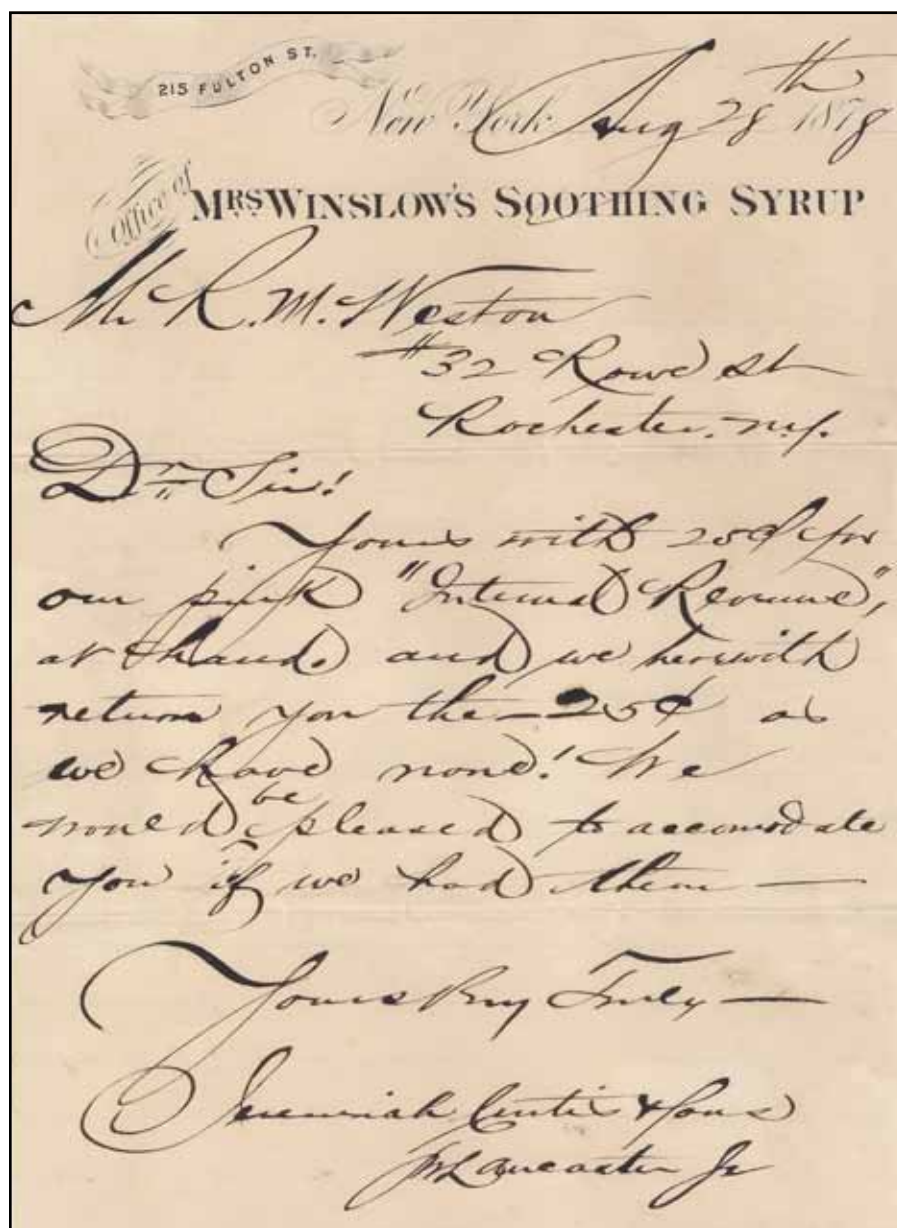 215 FULTON ST.
New York Aug 28th 1878
Office of MRS WINSLOW'S SOOTHING SYRUP
Mr R. M. Weston
#32 Rowe St
Rochester. N.Y.
Dr Sir!
Yours with 25¢ for
our pink "Internal Revenue",
at hand and we herewith
return you the — 25¢ as
we have none! We
would be pleased to accomodate
you if we had them —
Yours Very Truly —
Jeremiah Curtis & Sons
Lancaster Jr